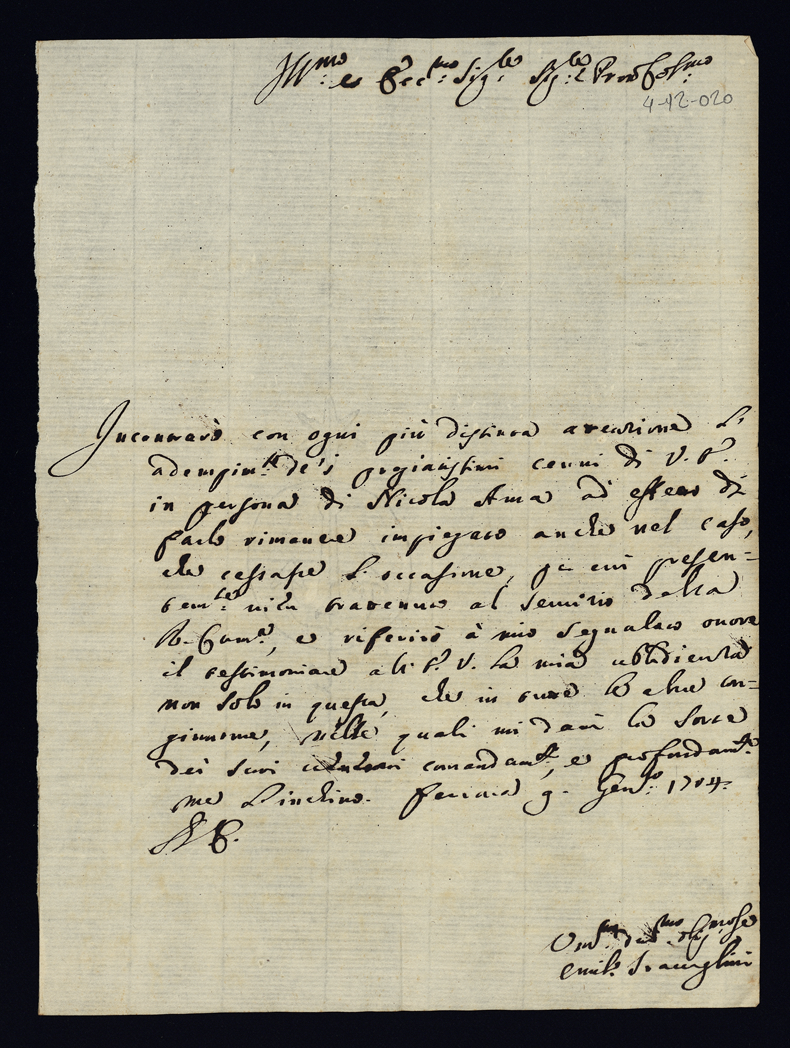 Ill.mo et Ecc.mo Sig.re Sig.re e Pron Col.mo
4-12-020
Incontrarò con ogni più distinta attentione l'
adempim.to de' i pregiatissimi cenni di V. E.
in persona di Nicola Ama ad effetto di
farlo rimanere impiegato anche nel caso,
che cessasse l'occasione, per cui presen=
tem.te vien trattenuto al servitio della
R. Cam.a, e riferirò à mio segnalato onore
il testimoniare all' E. V. la mia ubbidienza
non solo in questa, che in tutte le altre con=
giunture, nelle quali mi darà la sorte
dei suoi comandam.ti, e profondam.te
me l'inchino. Ferrara 9. Gen.o 1704.
V. E.
Um.mo Dev.mo Oblig.mo Se